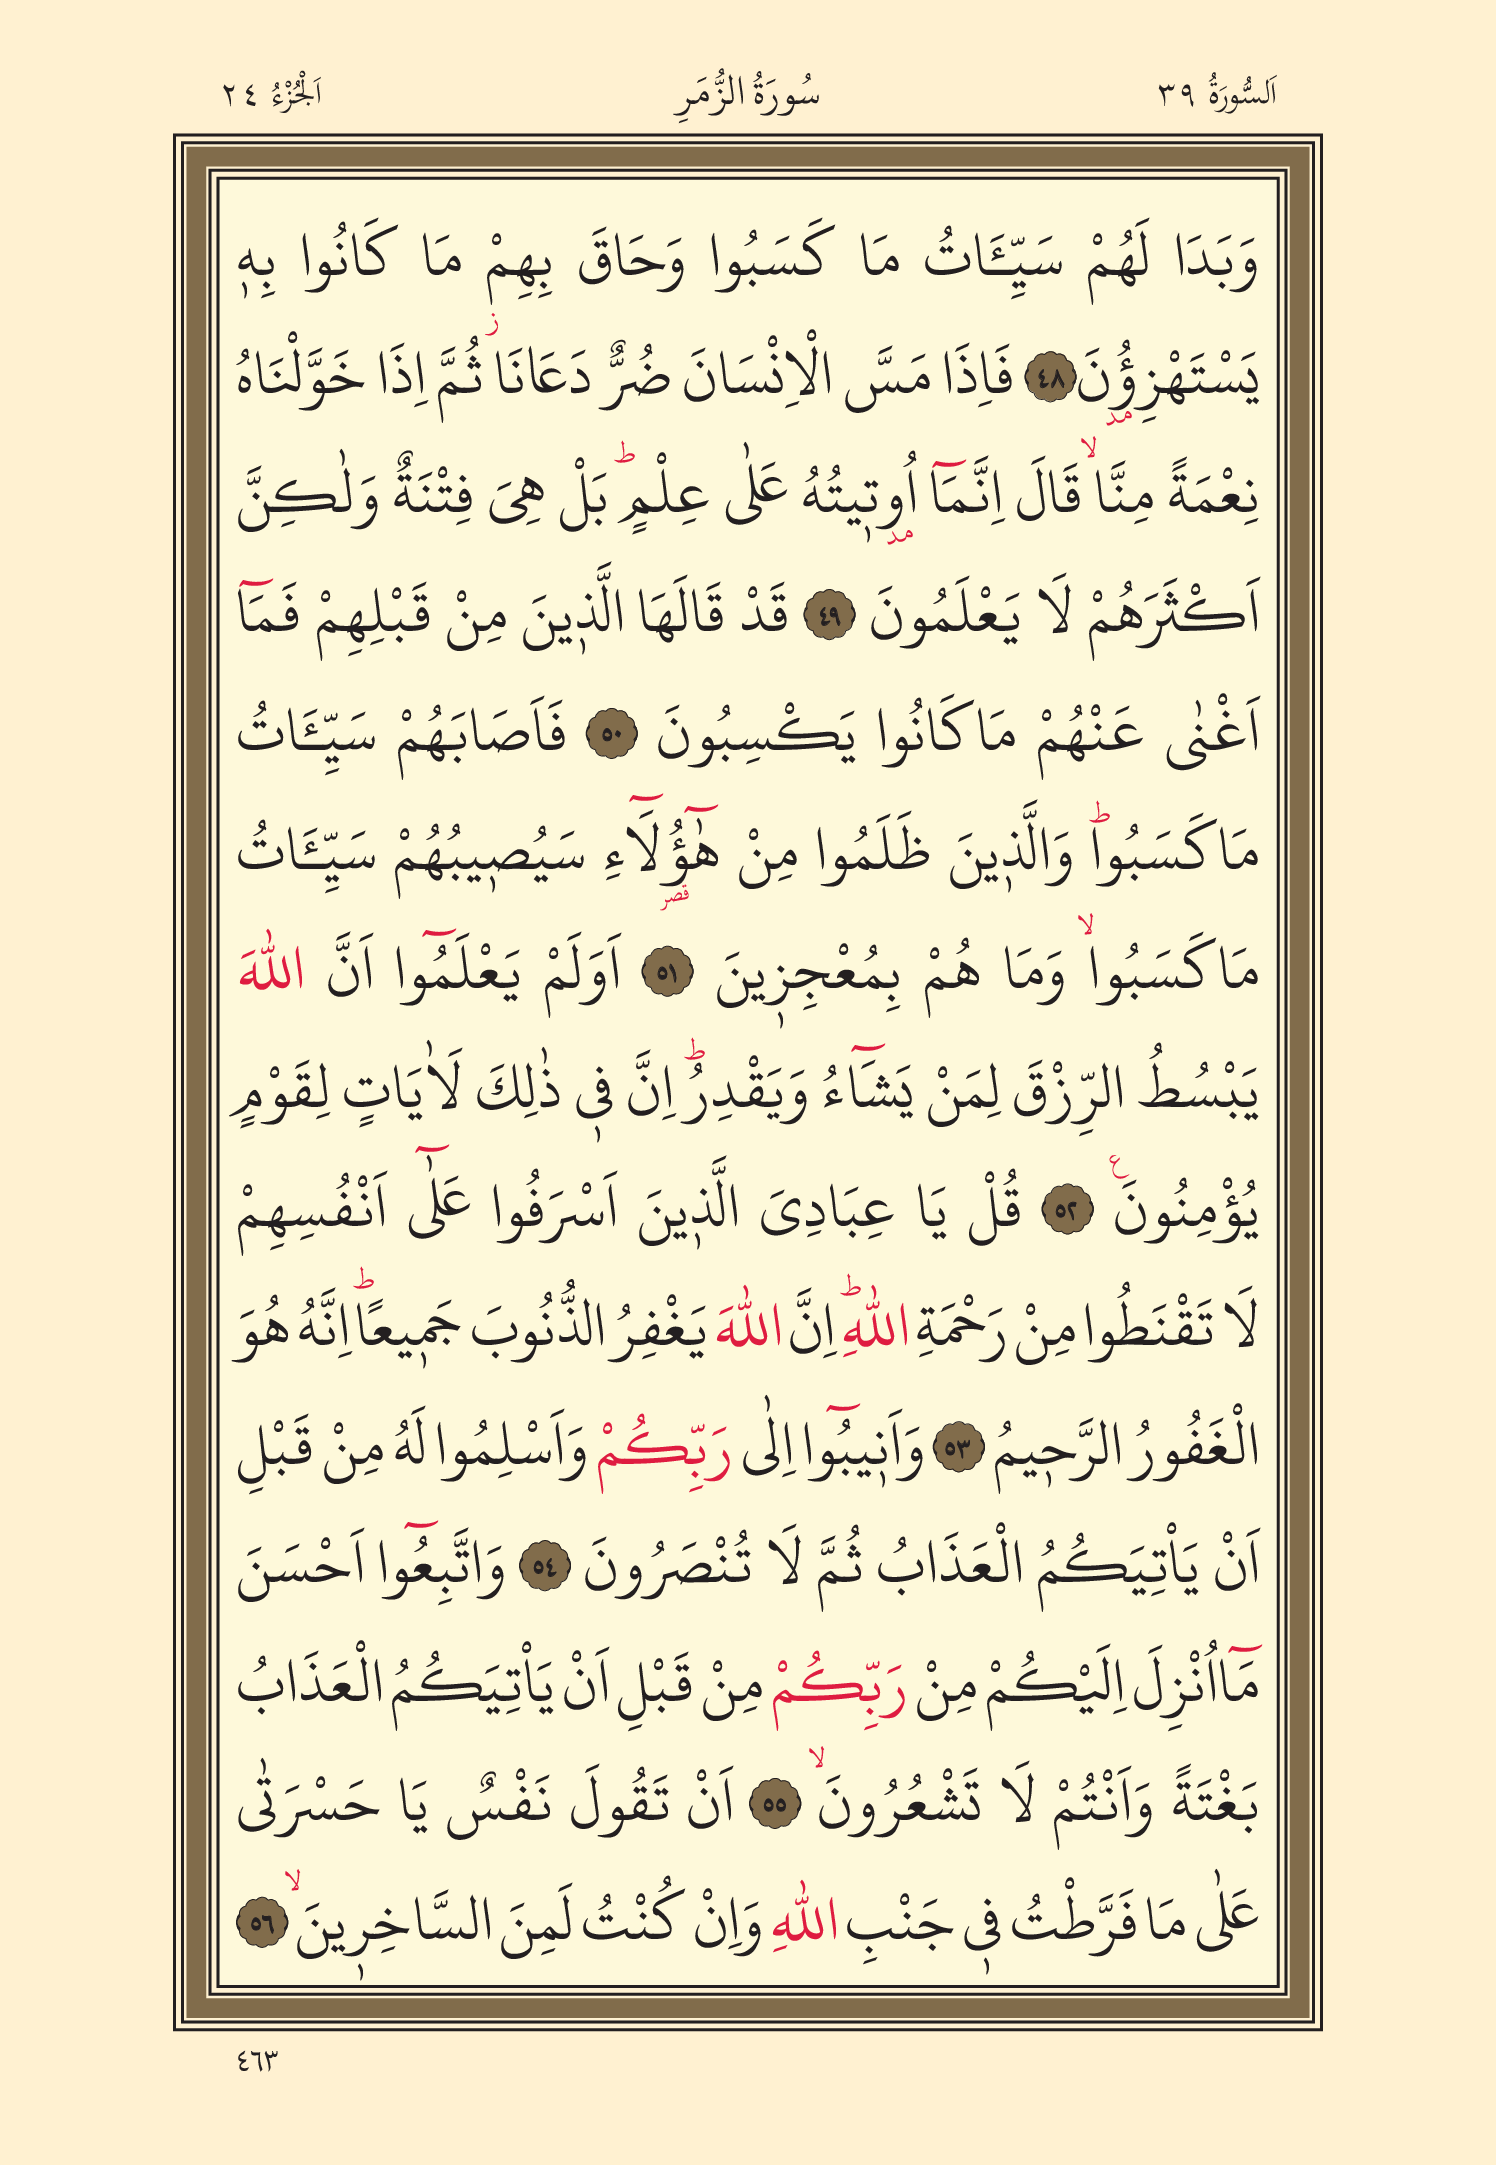 اَلسُّورَةُ ٣٩ سُورَةُ الزُّمَرِ اَلْجُزْءُ ٢٤
وَبَدَا لَهُمْ سَيِّـَٔاتُ مَا كَسَبُوا وَحَاقَ بِهِمْ مَا كَانُوا بِه۪
يَسْتَهْزِؤُ۫نَ ﴿٤٨﴾ فَاِذَا مَسَّ الْاِنْسَانَ ضُرٌّ دَعَانَاۘ ثُمَّ اِذَا خَوَّلْنَاهُ
نِعْمَةً مِنَّاۙ قَالَ اِنَّمَٓا اُو۫ت۪يتُهُ عَلٰى عِلْمٍۜ بَلْ هِيَ فِتْنَةٌ وَلٰكِنَّ
اَكْثَرَهُمْ لَا يَعْلَمُونَ ﴿٤٩﴾ قَدْ قَالَهَا الَّذ۪ينَ مِنْ قَبْلِهِمْ فَمَٓا
اَغْنٰى عَنْهُمْ مَاكَانُوا يَكْسِبُونَ ﴿٥٠﴾ فَاَصَابَهُمْ سَيِّـَٔاتُ
مَاكَسَبُواۜ وَالَّذ۪ينَ ظَلَمُوا مِنْ هٰٓؤُ۬لَٓاءِ سَيُص۪يبُهُمْ سَيِّـَٔاتُ
مَاكَسَبُواۙ وَمَا هُمْ بِمُعْجِز۪ينَ ﴿٥١﴾ اَوَلَمْ يَعْلَمُٓوا اَنَّ اللّٰهَ
يَبْسُطُ الرِّزْقَ لِمَنْ يَشَٓاءُ وَيَقْدِرُۜ اِنَّ ف۪ي ذٰلِكَ لَاٰيَاتٍ لِقَوْمٍ
يُؤْمِنُونَ۟ ﴿٥٢﴾ قُلْ يَا عِبَادِيَ الَّذ۪ينَ اَسْرَفُوا عَلٰٓى اَنْفُسِهِمْ
لَا تَقْنَطُوا مِنْ رَحْمَةِ اللّٰهِۜ اِنَّ اللّٰهَ يَغْفِرُ الذُّنُوبَ جَم۪يعًاۜ اِنَّهُ هُوَ
الْغَفُورُ الرَّح۪يمُ ﴿٥٣﴾ وَاَن۪يبُٓوا اِلٰى رَبِّكُمْ وَاَسْلِمُوا لَهُ مِنْ قَبْلِ
اَنْ يَاْتِيَكُمُ الْعَذَابُ ثُمَّ لَا تُنْصَرُونَ ﴿٥٤﴾ وَاتَّبِعُٓوا اَحْسَنَ
مَٓااُنْزِلَ اِلَيْكُمْ مِنْ رَبِّكُمْ مِنْ قَبْلِ اَنْ يَاْتِيَكُمُ الْعَذَابُ
بَغْتَةً وَاَنْتُمْ لَا تَشْعُرُونَۙ ﴿٥٥﴾ اَنْ تَقُولَ نَفْسٌ يَا حَسْرَتٰى
عَلٰى مَا فَرَّطْتُ ف۪ي جَنْبِ اللّٰهِ وَاِنْ كُنْتُ لَمِنَ السَّاخِر۪ينَۙ ﴿٥٦﴾
٤٦٣